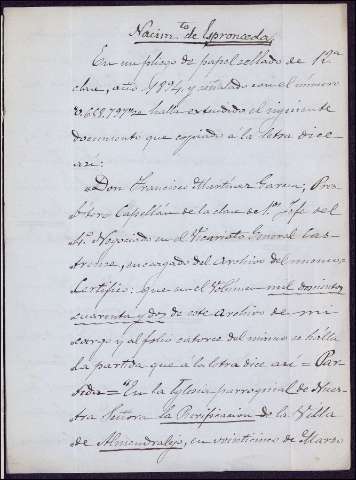 Nacim.to de Espronceda
En un pliego de papel sellado de 12ª
clase, año 1894 y señalado con el número
0,668,797 se halla extendido el siguiente
documento que copiado á la letra dice
así:
"Don Francisco Martínez García; Pres-
bítero Capellán de la clase de 1os, Jefe del
4º Negociado en el Vicariato General Cas-
trense, encargado del Archivo del mismo=
Certifico: que en el Volúmen mil doscientos
cuarenta y dos de este Archivo de mi
cargo y al folio catorce del mismo se halla
la partida que á la letra dice así = Par-
tida = "En la Iglesia parroquial de Nues-
tra Señora la Purificacion de la Villa
de Almendralejo, en veinticinco de Marzo